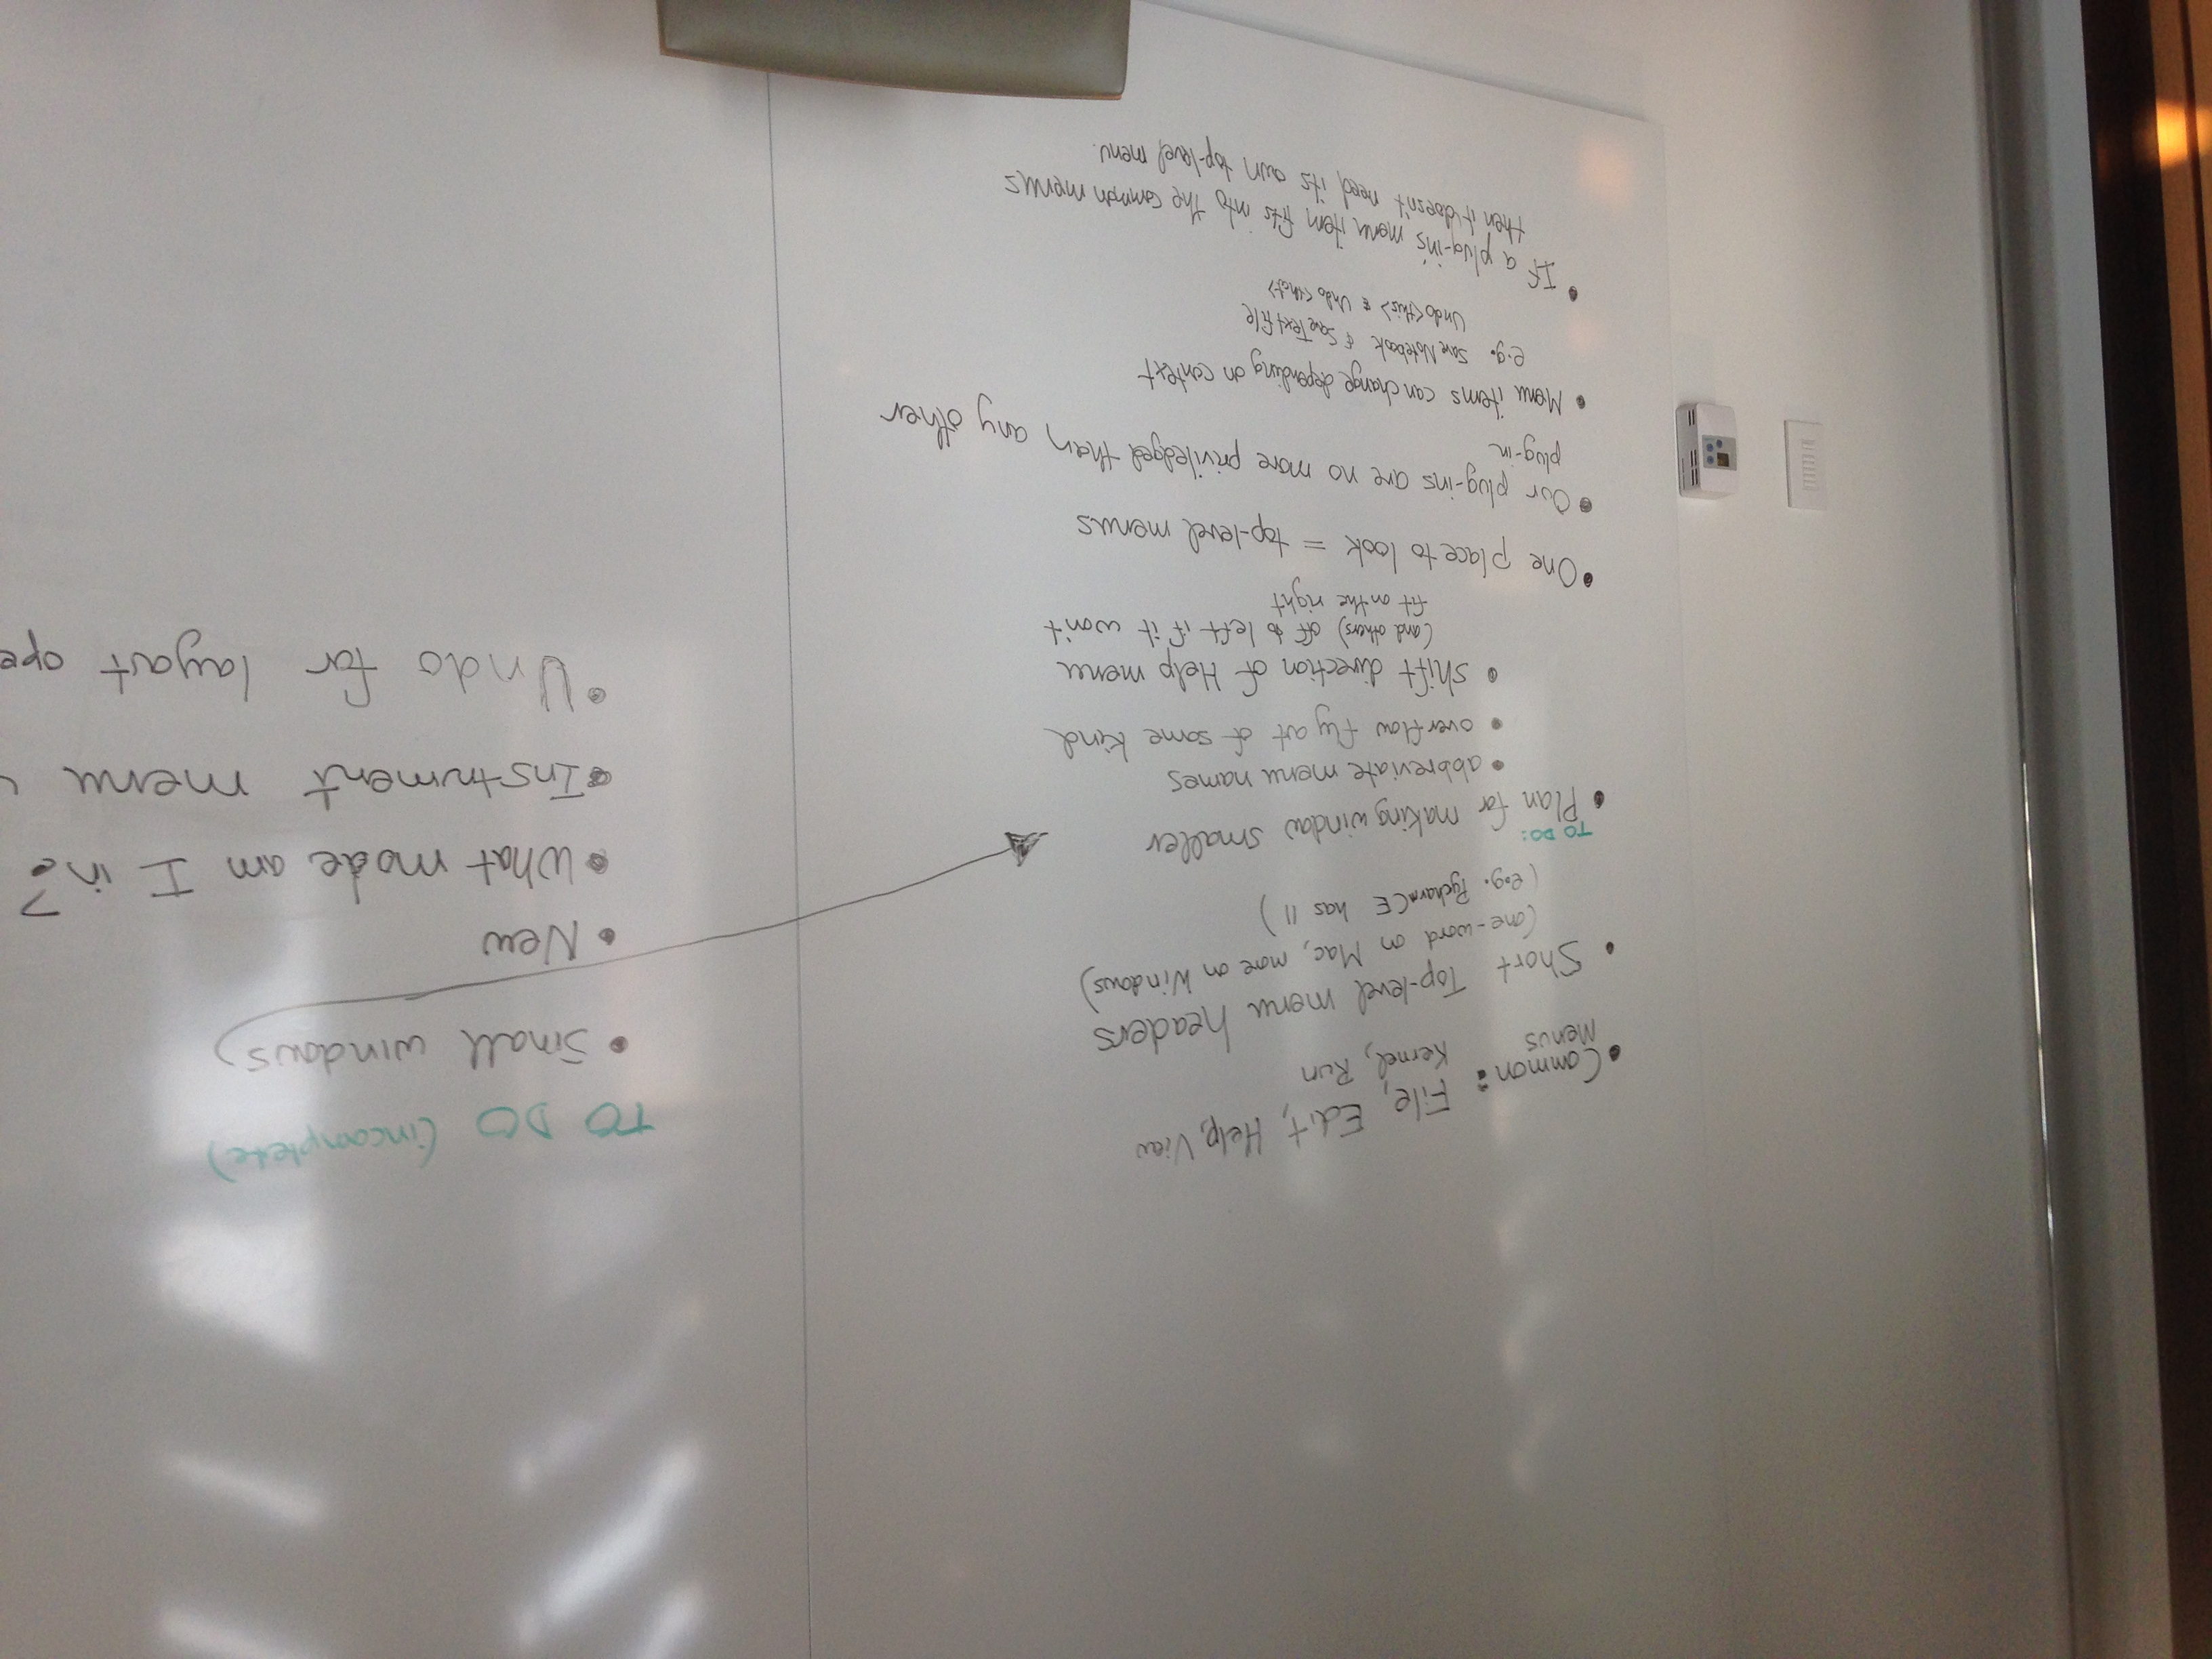 • Common : File, Edit, Help, View
Menus Kernel, Run
• Short Top-level menu headers
(one-word on Mac, more on Windows)
(e.g. PycharmCE has 11)
TO DO:
• Plan for making window smaller
• abbreviate menu names
• overflow fly out of some kind
• shift direction of Help menu
(and others) off to left if it won't
fit on the right
• One place to look = top-level menus
• Our plug-ins are no more priviledged than any other
plug-in
• Menu items can change depending on context
e.g. Save Notebook & Save Text File
Undo <this> & Undo <that>
• If a plug-in's menu item fits into the common menus
then it doesn't need its own top-level menu.
TO DO (incomplete)
• Small windows
• New
• What mode am I in?
• Instrument menu
• Undo for layout ope